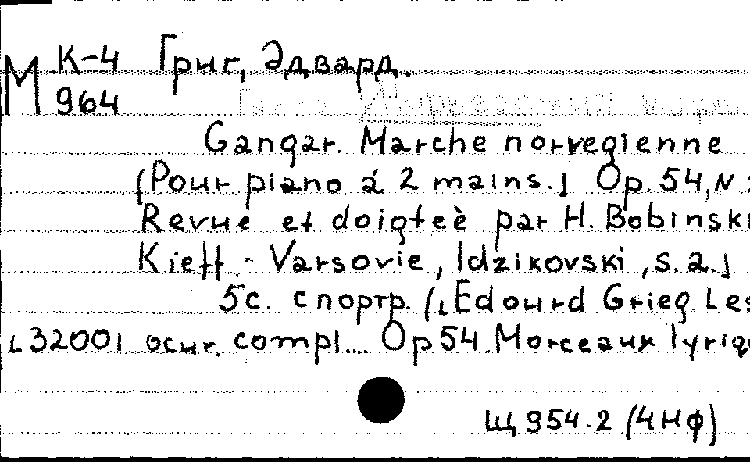 М К-4 Григ, Эдвард.
964
Gangar. Marche norvegienne
[Pour piano à 2 mains.] Op. 54, N
Revue et doigteè par H. Bobinski
Kieff - Varsovie, Idzikovski, s.a.]
5с. с портр. ([Edouard Grieg Les
[3200] oeuvr. compl.... Op 54 Morceaux lyriq
Щ 954.2 (4Нф)